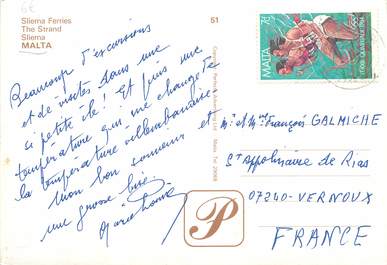 6€
Sliema Ferries
The Strand
Sliema
MALTA
51
Beaucoup d'excursions
et de visites dans une
si petite île ! Et puis une
température qui me change de
la température villeurbannaise.
mon bon souvenir et
une grosse bise
Marie Louise
MALTA 7c
M. et Mme François GALMICHE
St Appolinaire de Rias
07240-VERNOUX
FRANCE
P